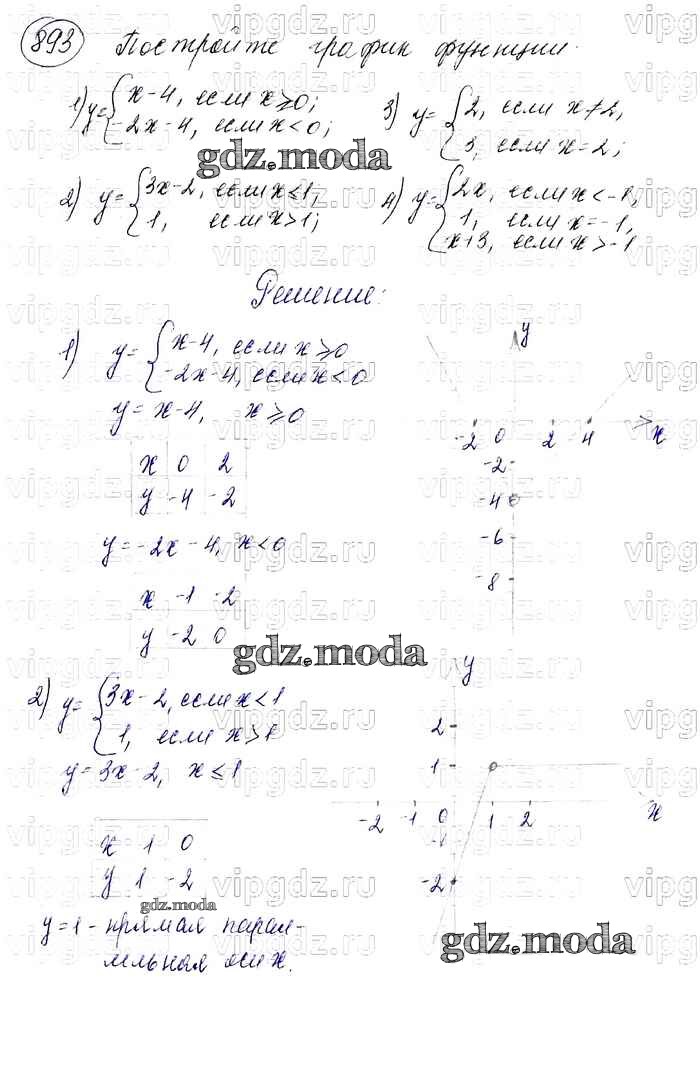 893 Постройте график функции.
1) y = { x-4, если x ≥ 0;
-2x-4, если x < 0;
3) y = { 2, если x ≠ 2,
3, если x = 2;
gdz.moda
2) y = { 3x-2, если x ≤ 1,
1, если x > 1;
4) y = { 2x, если x < -1,
1, если x = -1,
x+3, если x > -1
Решение:
1) y = { x-4, если x ≥ 0
-2x-4, если x < 0
y = x-4, x ≥ 0
x 0 2
y -4 -2
y = -2x - 4, x < 0
x -1 -2
y -2 0
y
-2 0 2 4 x
-2
-4
-6
-8
gdz.moda
2) y = { 3x-2, если x < 1
1, если x > 1
y = 3x-2, x ≤ 1
x 1 0
y 1 -2
gdz.moda
y = 1 - прямая парал-
лельная оси x.
y
2
1
-2 -1 0 1 2 x
-1
-2
gdz.moda
vipgdz.ru